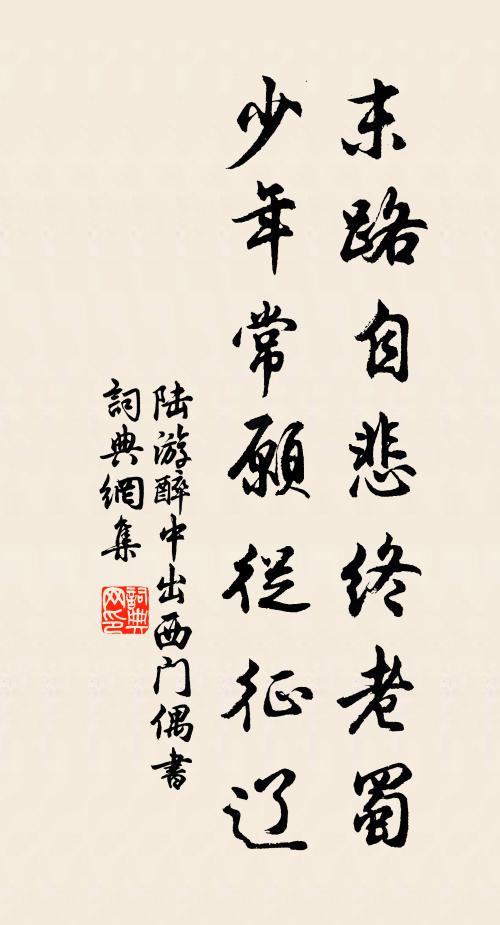 末路自悲终老蜀
少年常願從征辽
陆游醉中出西门偶書
詞典網集
詞典网印